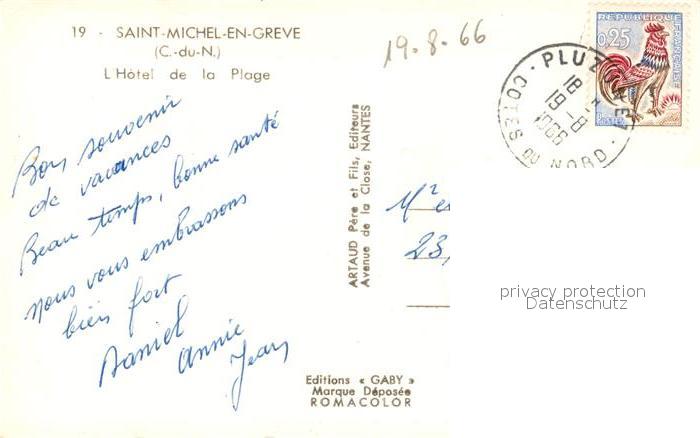 19 - SAINT-MICHEL-EN-GREVE
(C.-du-N.)
L'Hôtel de la Plage
19-8-66
RÉPUBLIQUE FRANÇAISE
0,25
POSTES
PLUZUNET
18 H
19-8
1966
COTES DU NORD
Bons souvenir
de vacances
Beau temps, bonne santé
nous vous embrassons
bien fort
Daniel
Annie
Jean
ARTAUD Père et Fils, Editeurs
Avenue de la Close, NANTES
Mr et
23,
privacy protection
Datenschutz
Editions « GABY »
Marque Déposée
ROMACOLOR